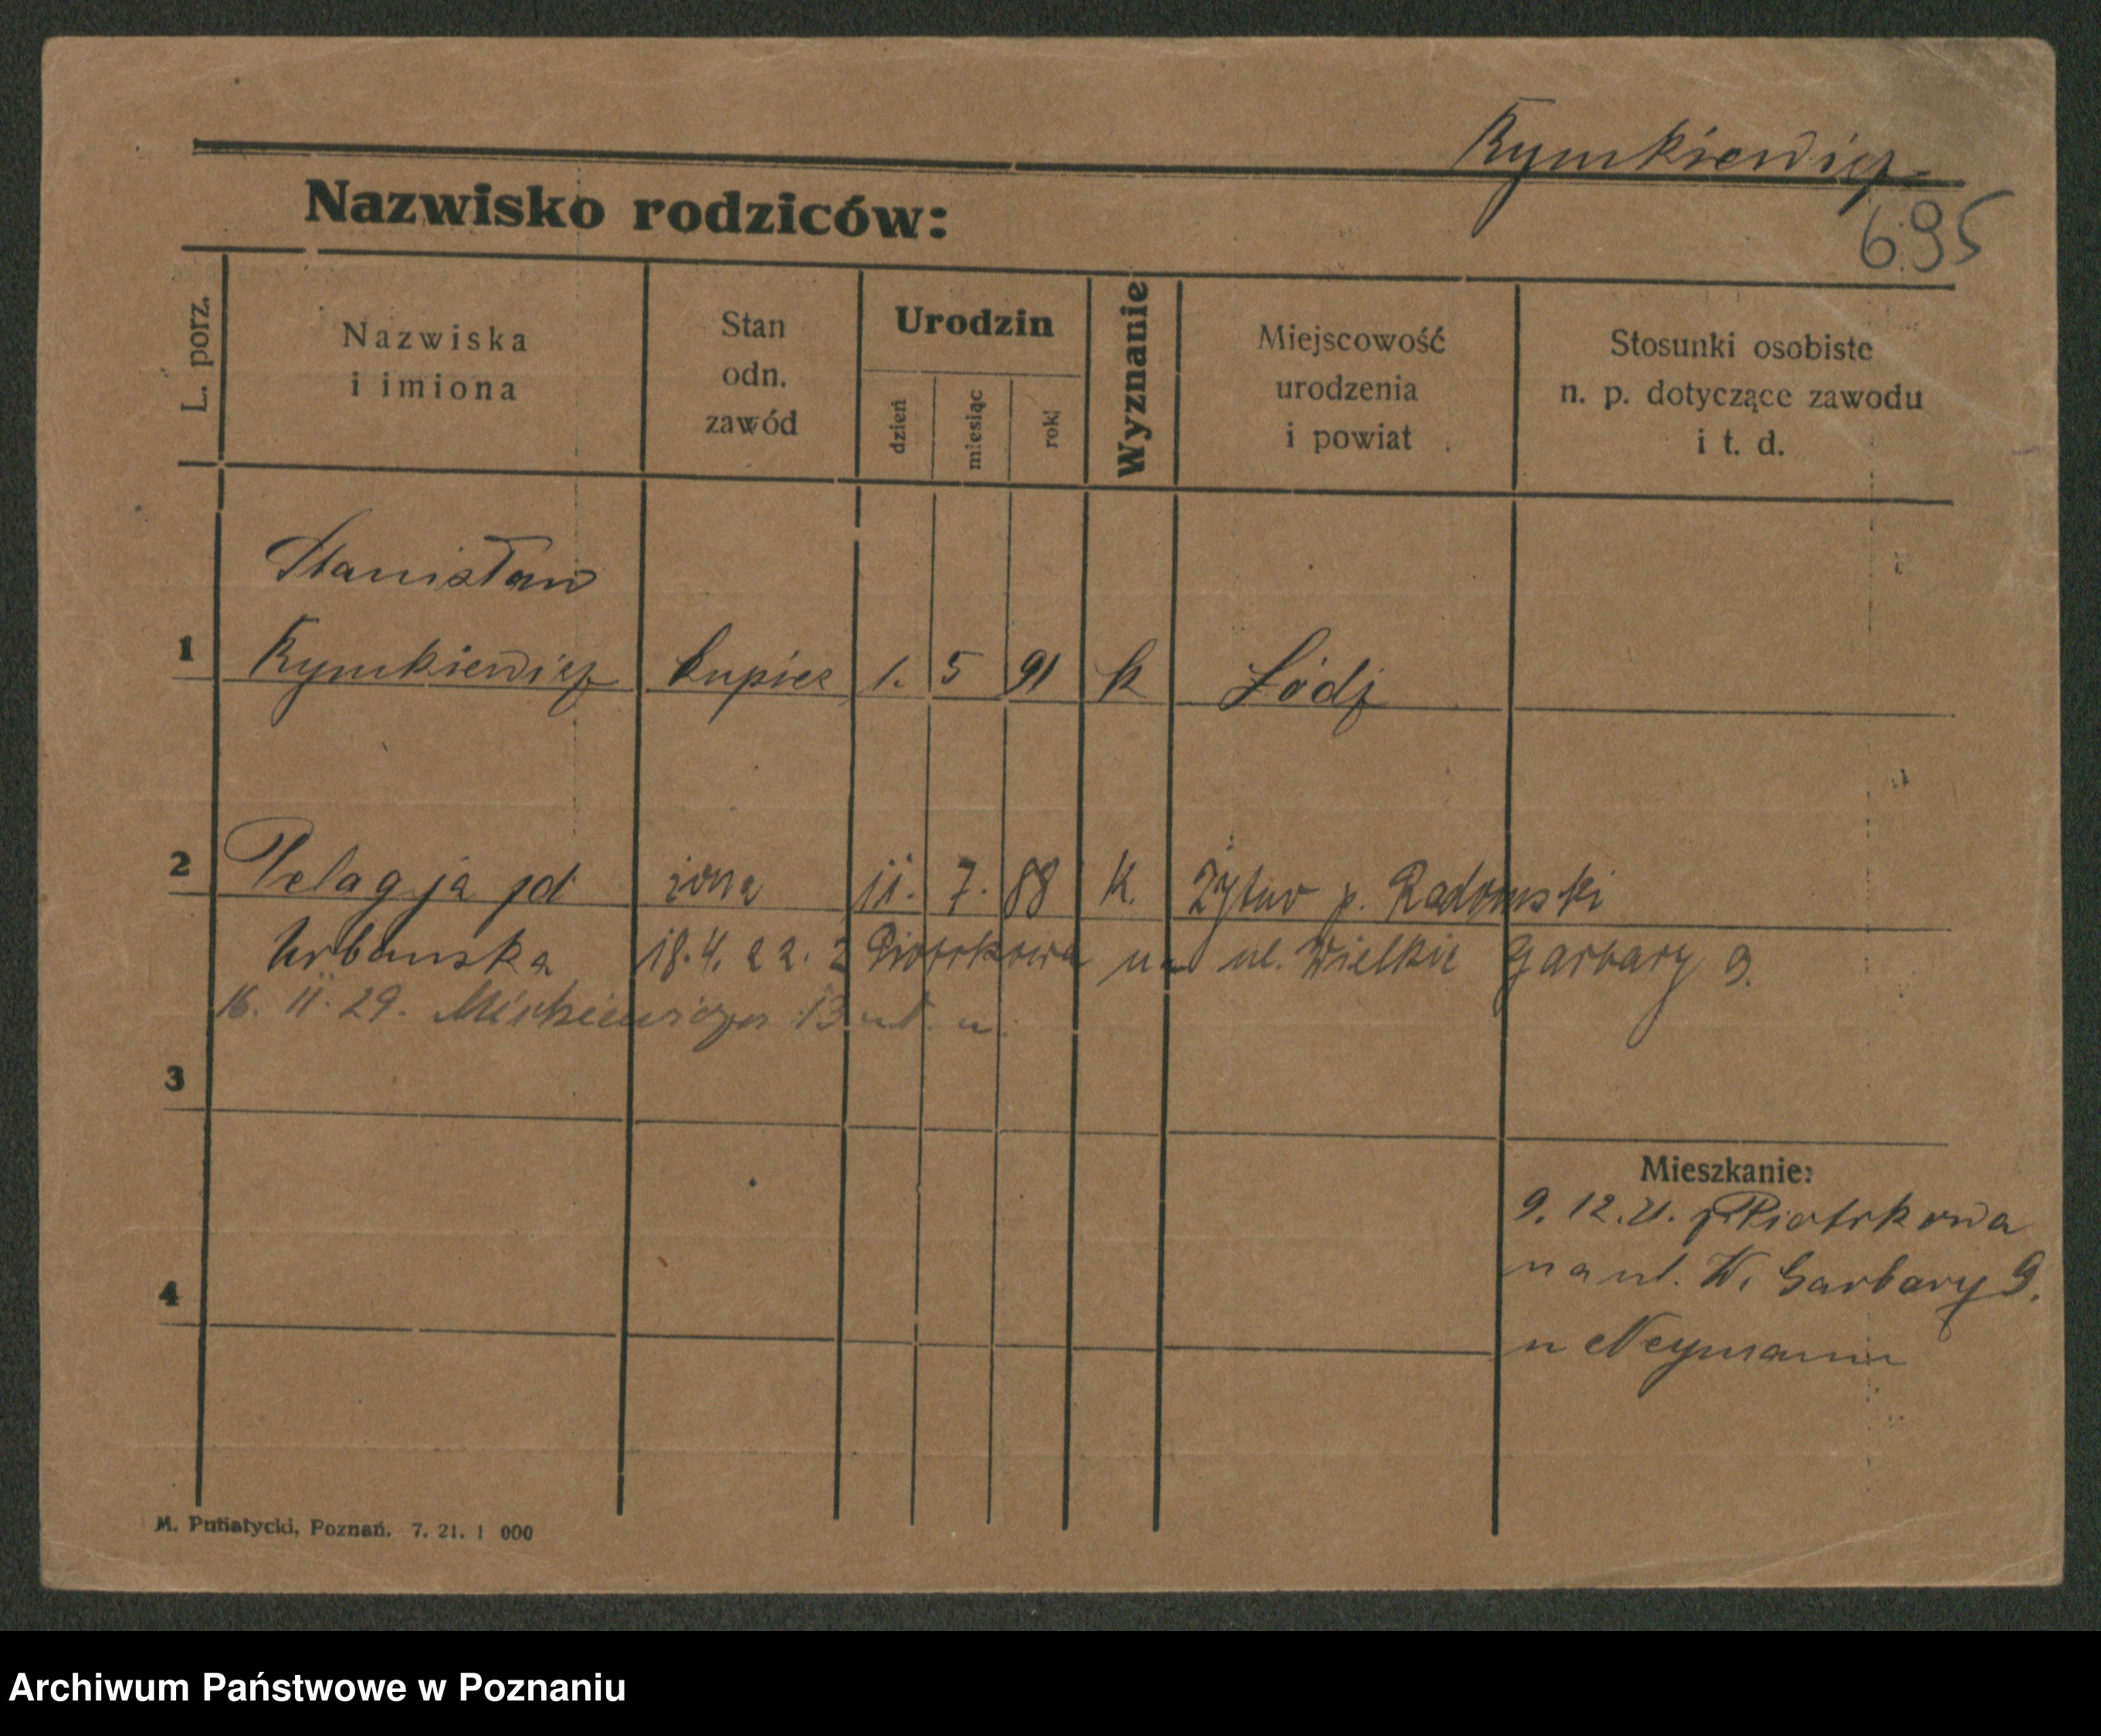 Rymkiewicz
Nazwisko rodziców:
695
L. porz.
Nazwiska
i imiona
Stan
odn.
zawód
Urodzin
dzień
miesiąc
rok
Wyznanie
Miejscowość
urodzenia
i powiat
Stosunki osobiste
n. p. dotyczące zawodu
i t. d.
Stanisław
1 Rymkiewicz kupiec 1. 5 91 k Łódź
2 Pelagja zd żona 11. 7. 88 k. p. Radomski
Urbanska 18.4.22. z Piotrkowa na ul. Wielkie Garbary 9.
16. 11. 29. Mickiewicza 13
3
Mieszkanie:
9. 12. 21. z Piotrkowa
na ul. W. Garbary 9.
u Neymann
4
M. Putiatycki, Poznań. 7. 21. 1 000
Archiwum Państwowe w Poznaniu